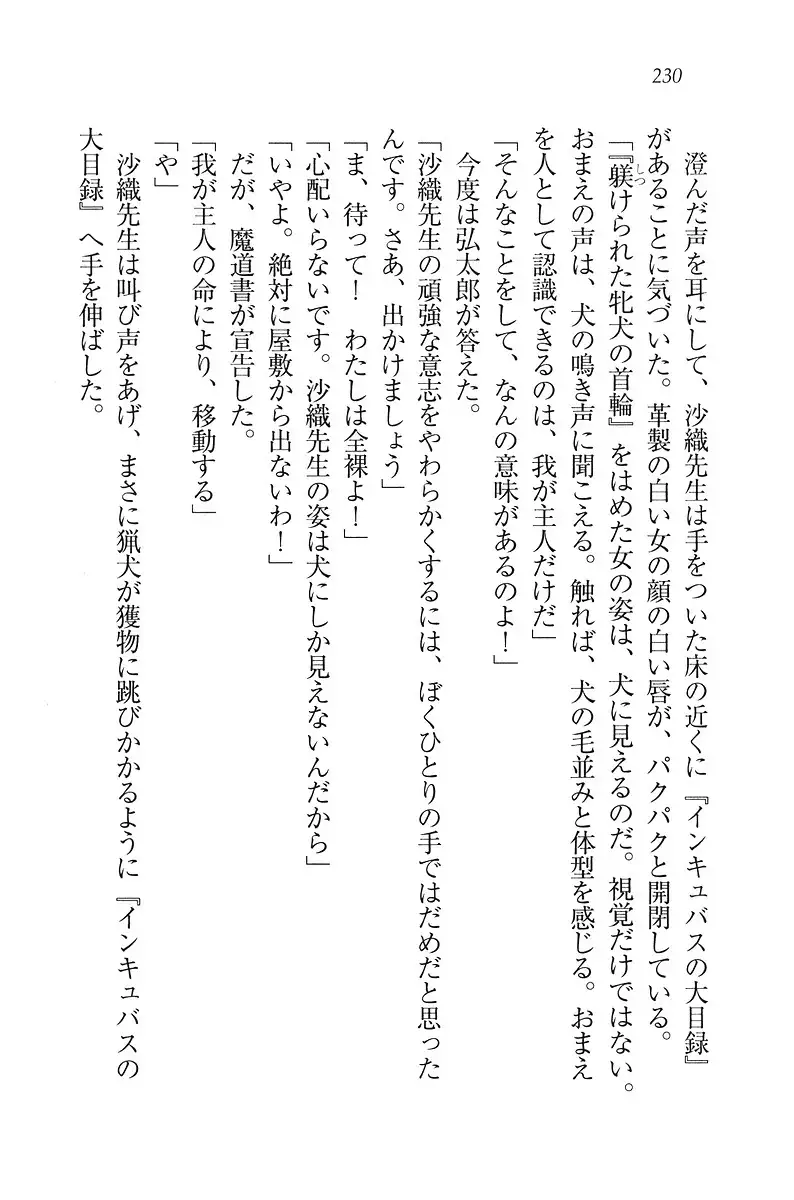 230
澄んだ声を耳にして、沙織先生は手をついた床の近くに『インキュバスの大目録』
があることに気づいた。革製の白い女の顔の白い唇が、パクパクと開閉している。
「『躾けられた牝犬の首輪』をはめた女の姿は、犬に見えるのだ。視覚だけではない。
おまえの声は、犬の鳴き声に聞こえる。触れば、犬の毛並みと体型を感じる。おまえ
を人として認識できるのは、我が主人だけだ」
「そんなことをして、なんの意味があるのよ！」
今度は弘太郎が答えた。
「沙織先生の頑強な意志をやわらかくするには、ぼくひとりの手ではだめだと思った
んです。さあ、出かけましょう」
「ま、待って！　わたしは全裸よ！」
「心配いらないです。沙織先生の姿は犬にしか見えないんだから」
「いやよ。絶対に屋敷から出ないわ！」
だが、魔道書が宣告した。
「我が主人の命により、移動する」
「や」
沙織先生は叫び声をあげ、まさに猟犬が獲物に跳びかかるように『インキュバスの
大目録』へ手を伸ばした。